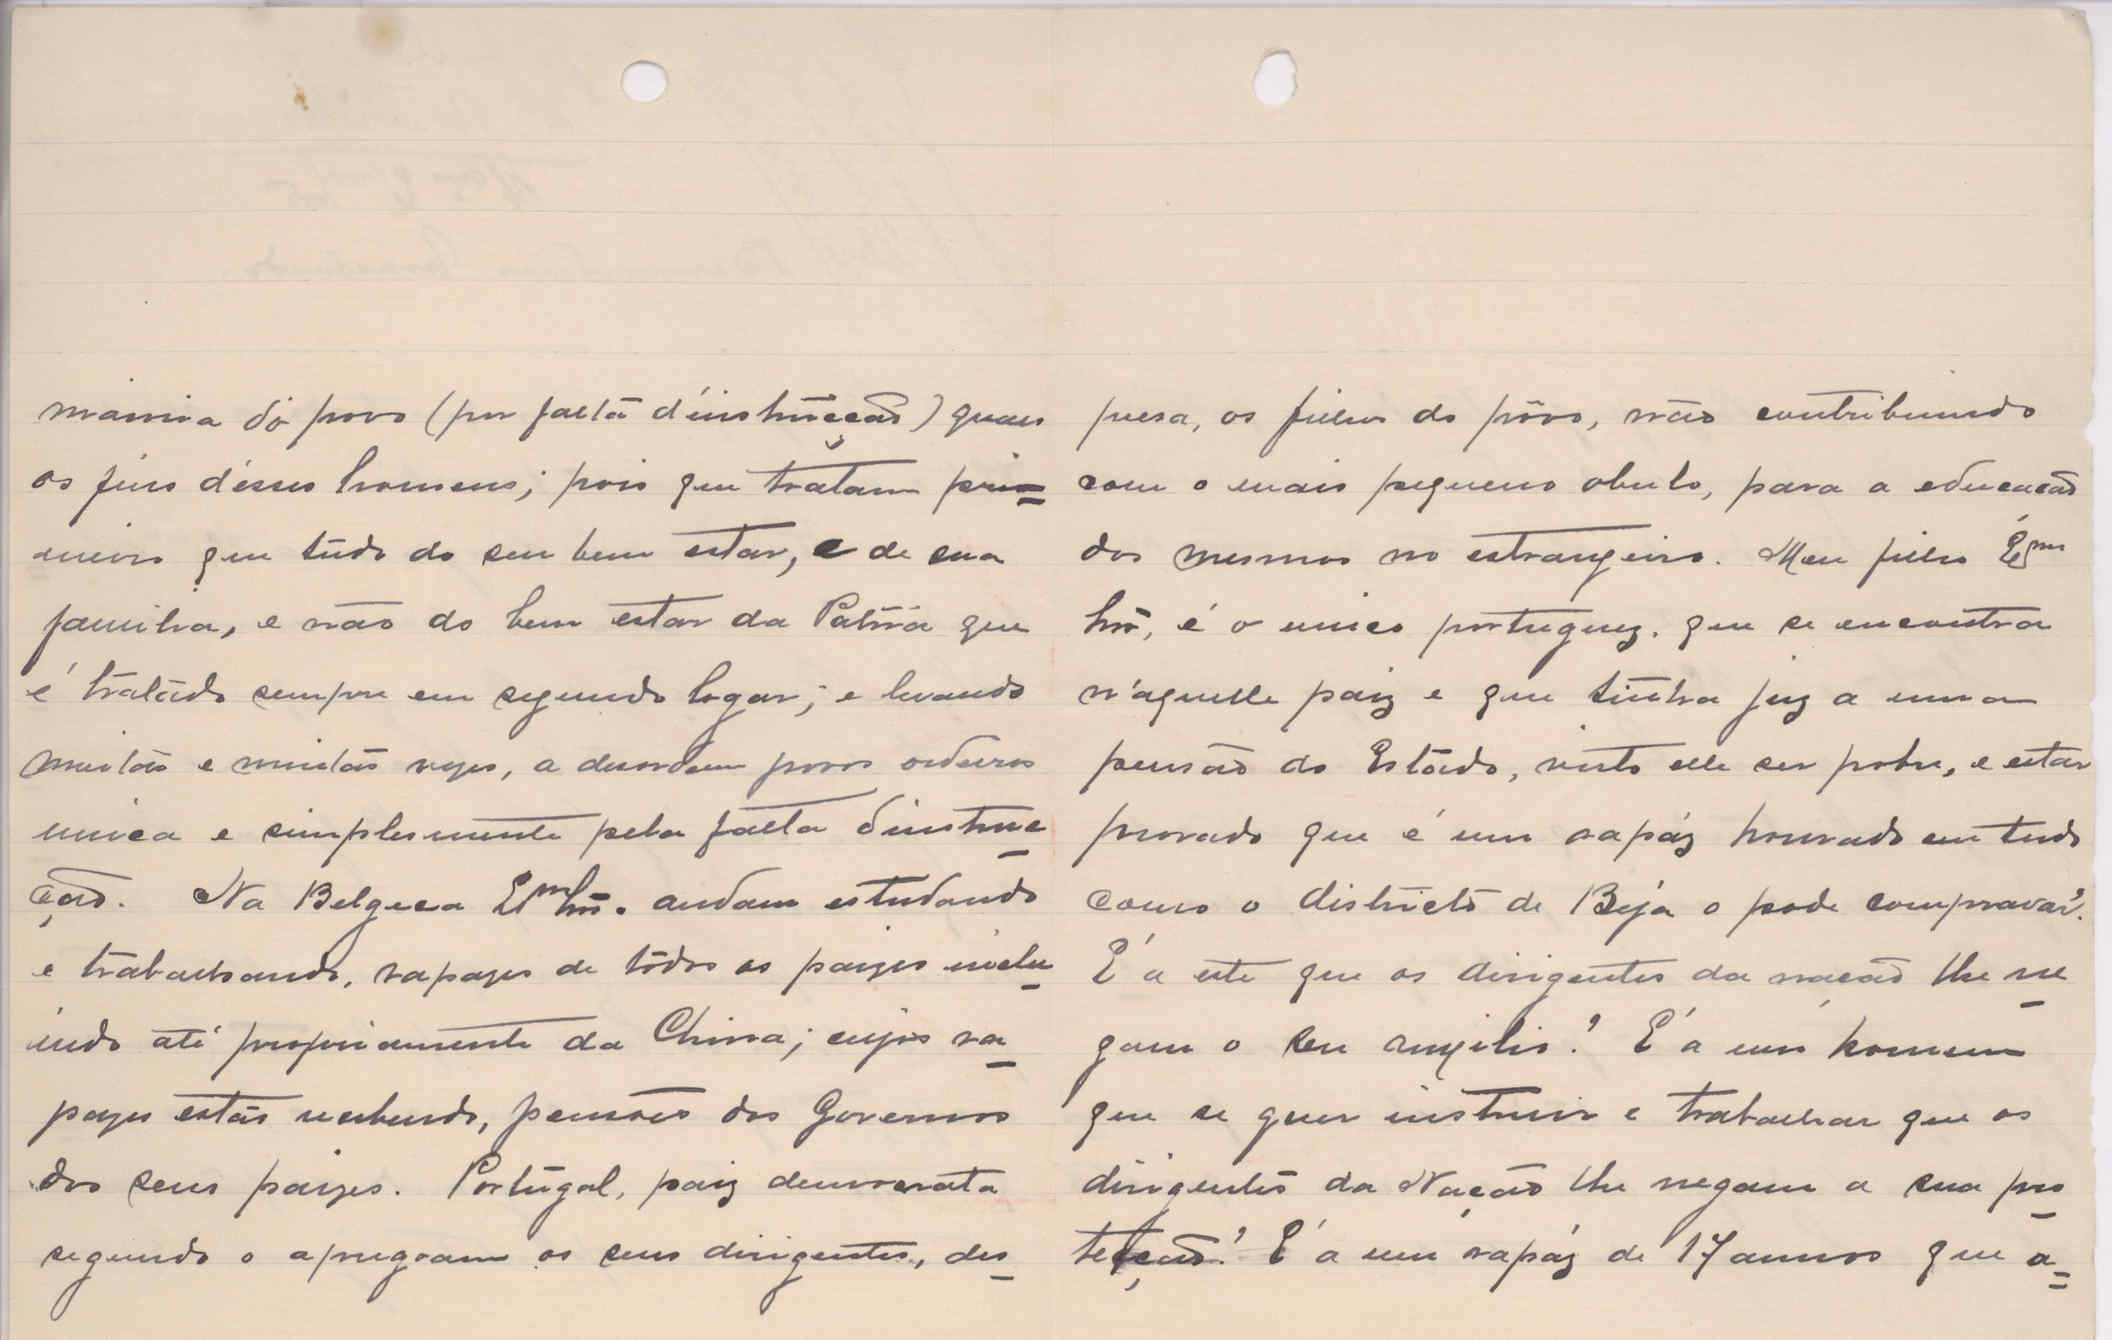 maioria do povo (por falta d'instrucção) quaes
os fins désses homens; pois que tratam pri=
meiro que tudo do seu bem estar, e de sua
familia, e não do bem estar da Patria que
é tratádo sempre em segundo logar; e levando
muitas e muitas vezes, a desordem povos ordeiros
unica e simplesmente pela falta d'instruc-
ção. Na Belgica Exmo Snr. andam estudando
e trabalhando, rapazes de todos os paizes inclu-
indo até propriamente da China; cujos ra-
pazes estão recebendo, pensões dos Governos
dos seus paizes. Portugal, paiz democrata
segundo o apregoam os seus dirigentes, des-
presa, os filhos do pôvo, não contribuindo
com o mais pequeno obulo, para a educação
dos mesmos no estrangeiro. Meu filho Exmo
Snr, é o unico portuguez. que se encontra
n'aquelle paiz e que tinha juz a uma
pensão do Estádo, visto elle ser pobre, e estar
provado que é um rapáz honrado em tudo
como o districto de Béja o pode comprovar.
É a este que os dirigentes da nação lhe ne-
gam o seu auxilio? É a um homem
que se quer instruir e trabalhar que os
dirigentes da Nação lhe negam a sua pro-
tecção? É a um rapáz de 17 annos que a=